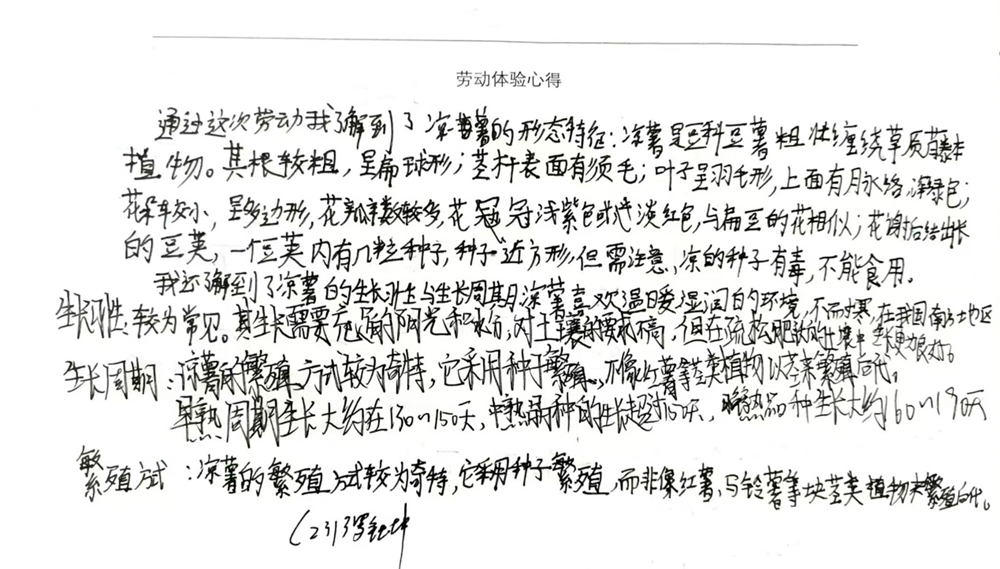 劳动体验心得
通过这次劳动我了解到了凉薯的形态特征：凉薯是豆科豆薯粗壮缠绕草质藤本
植物。其根较粗，呈扁球形；茎杆表面有须毛；叶子呈羽毛形，上面有脉络，深绿色；
花朵较小，呈多边形，花瓣数较多，花冠浅紫色或淡红色，与扁豆的花相似；花谢后结出长
的豆荚，一个豆荚内有几粒种子，种子近方形，但需注意，凉的种子有毒，不能食用。
我还了解到了凉薯的生长习性与生长周期，凉薯喜欢温暖湿润的环境，不耐寒，在我国南方地区
生长习性：较为常见。其生长需要充足的阳光和水分，对土壤的要求不高，但在疏松肥沃的土壤中生长更良好。
生长周期：凉薯的繁殖方式较为奇特，它采用种子繁殖，不像红薯等茎类植物以茎来繁殖后代。
早熟周期生长大约在130～150天，中熟品种的生长超过150天，晚熟品种生长大约160～190天
繁殖方式：凉薯的繁殖方式较为奇特，它采用种子繁殖，而非像红薯、马铃薯等块茎类植物来繁殖后代。
（231）罗